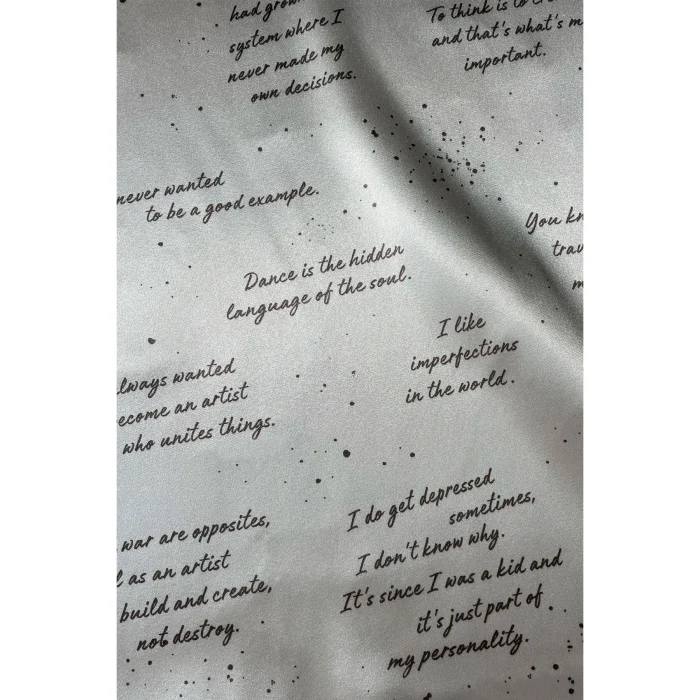 had
system where I
never made my
own decisions.
To think is to
and that's what's
important.
never wanted
to be a good example.
Dance is the hidden
language of the soul.
You
I like
imperfections
in the world.
always wanted
become an artist
who unites things.
war are opposites,
as an artist
build and create,
not destroy.
I do get depressed
sometimes,
I don't know why.
It's since I was a kid and
it's just part of
my personality.